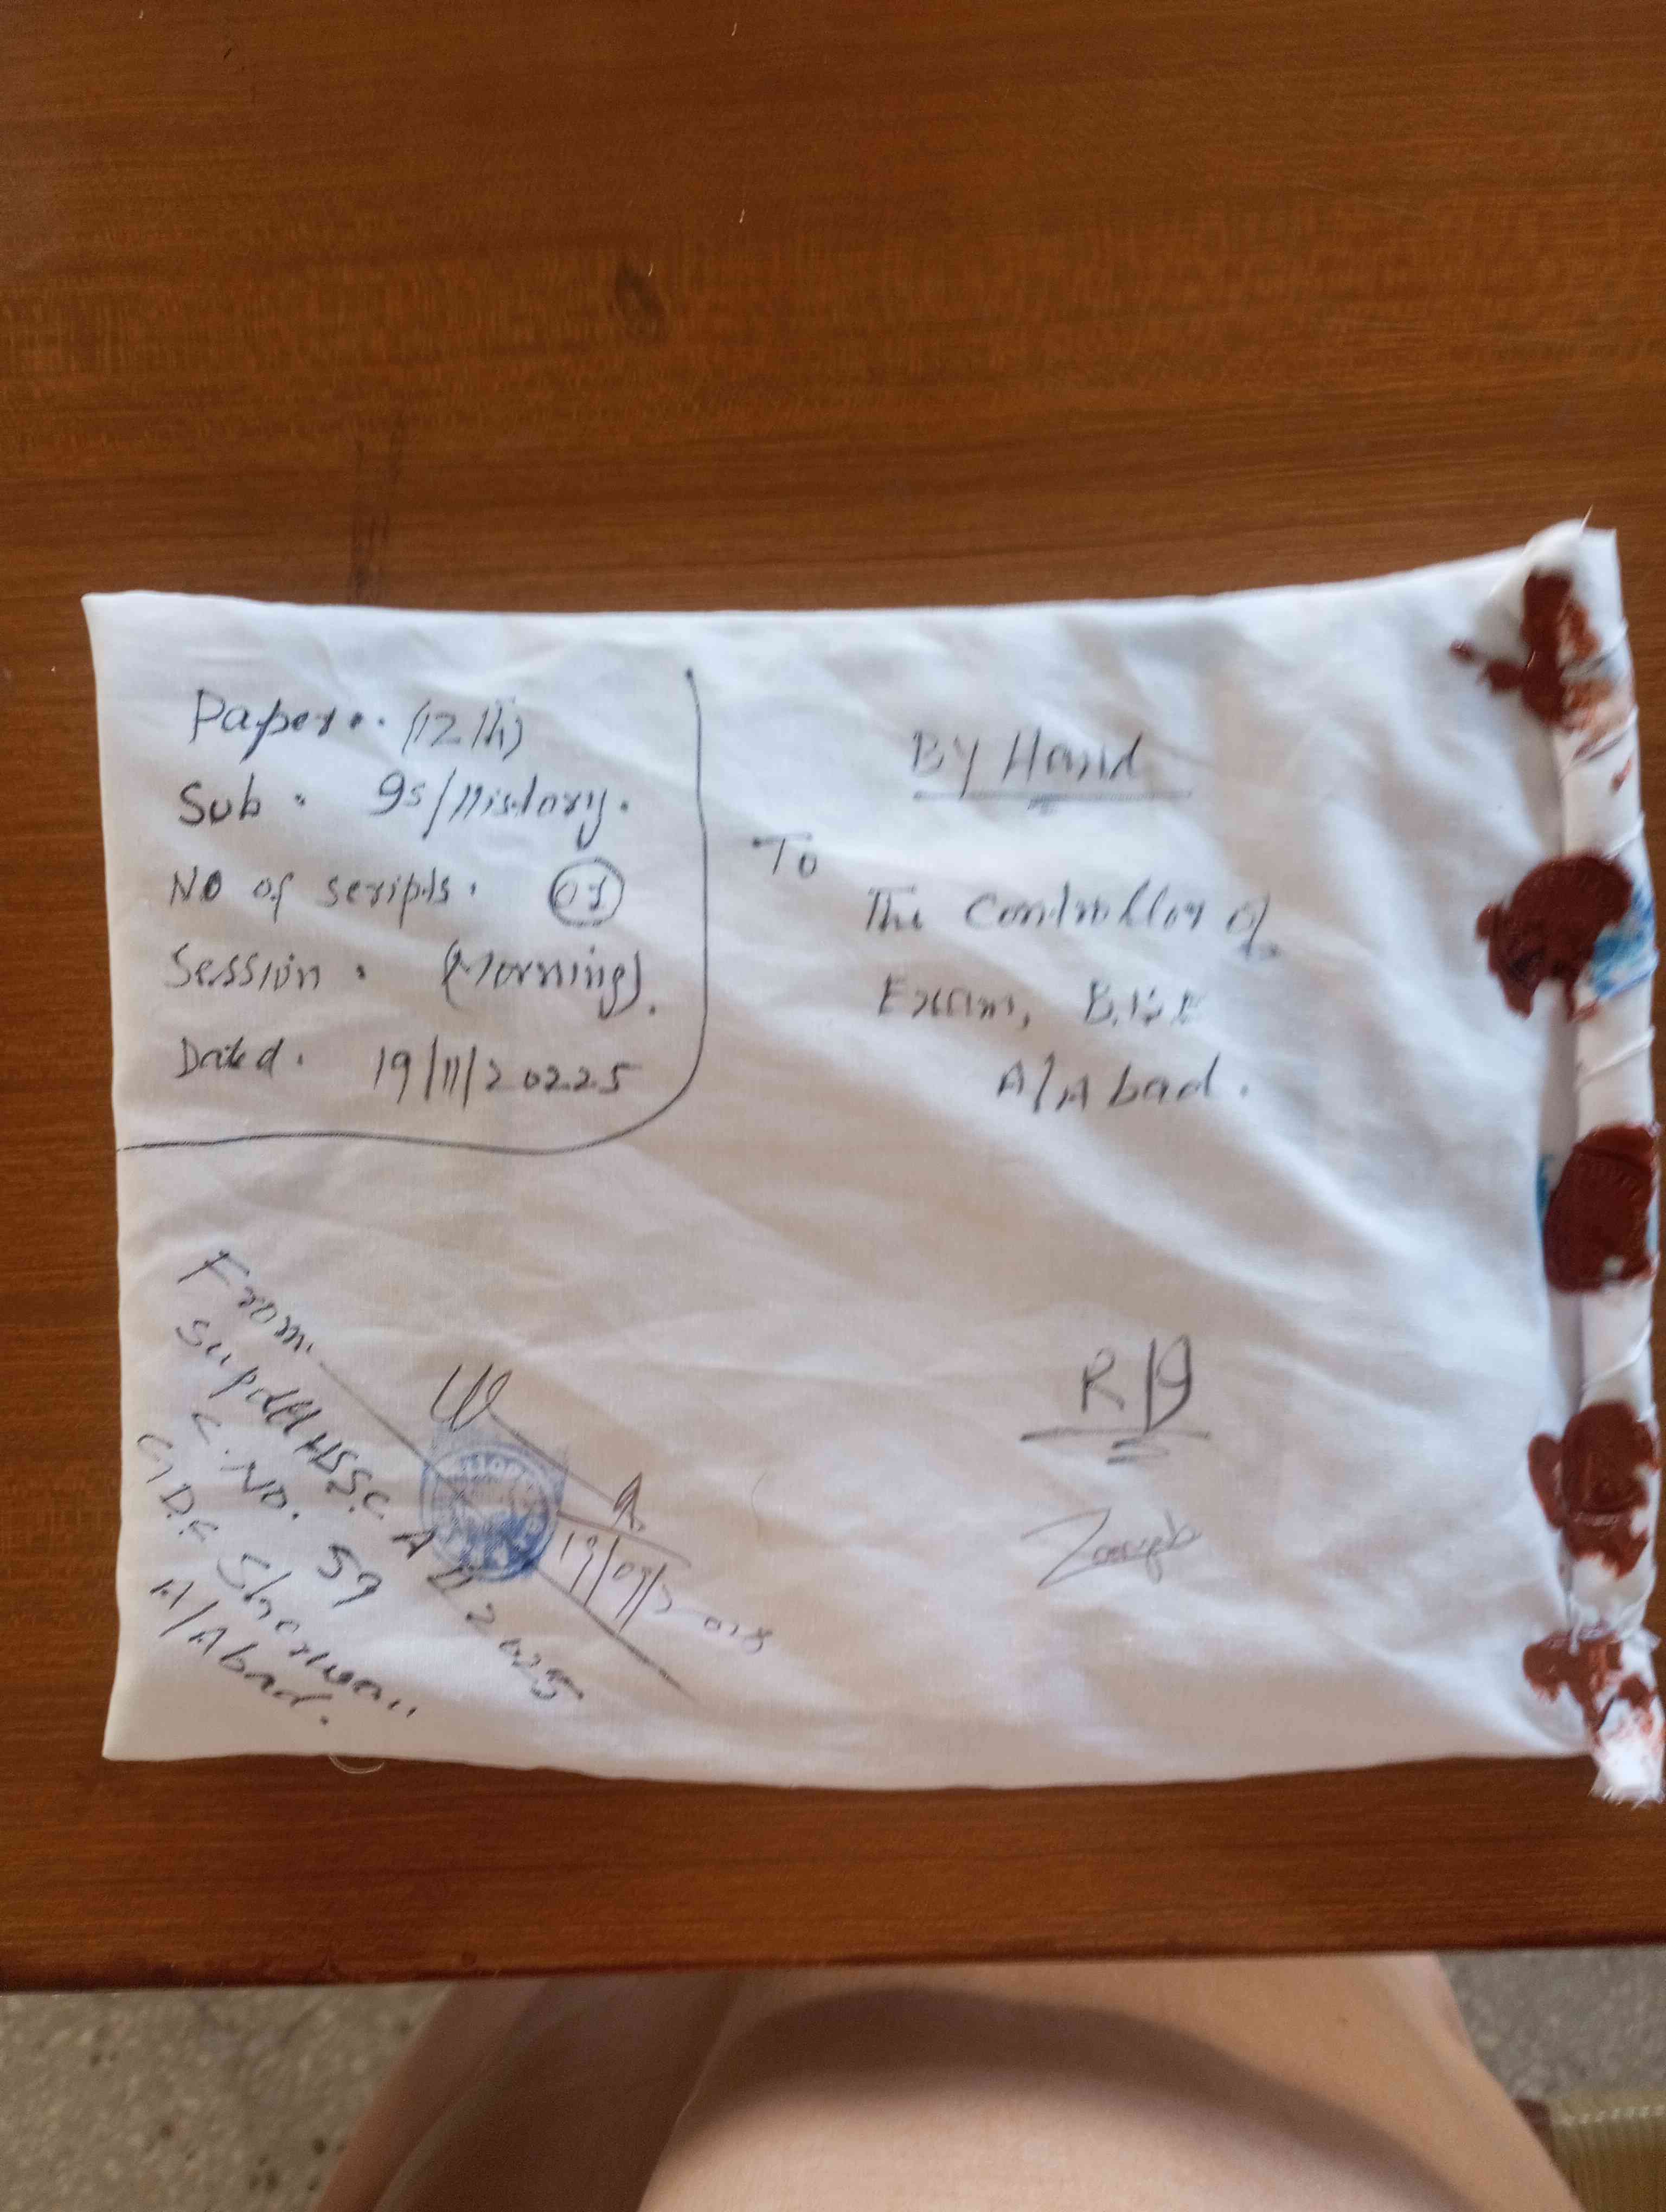 Paper. (12th)
Sub. 9s/History.
No of scripts. 03
Session. (Morning).
Dated. 19/11/20225
By Hand
To
The Controller of
Exam, B.I.S.E
A/Abad.
From.
Supdtt HSSC A II 2025
C. No. 59
G.D.C Sherwan
A/Abad.
R